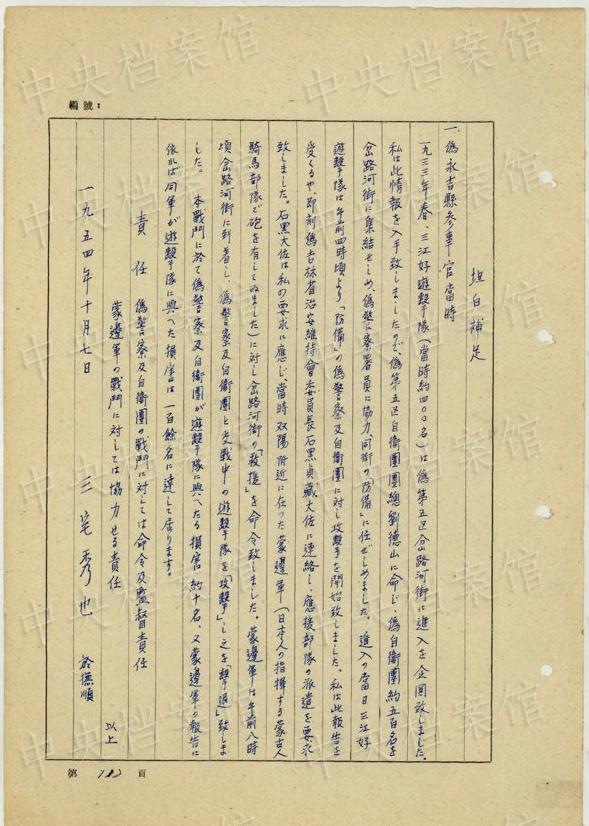 中央档案馆
編號：
坦白補足
一、偽永吉縣参事官當時
一九三三年春、三江好遊擊隊（當時約四〇〇名）は偽第五区岔路河街に進入を企図致しました。
私は此情報を入手致しましたので、偽第五区自衛團團總劉徳山に命じ、偽自衛團約五百名を
岔路河街に集結せしめ、偽警察署員に協力「同街の防備」に任ぜしめました。進入の當日三江好
遊擊隊は午前四時頃より「防備」の偽警察及自衛團に対し攻擊を開始致しました。私は此報告を
受くるや、即刻偽吉林省治安維持會委員長石黒貞藏大佐に連絡し、應援部隊の派遣を要求
致しました。石黒大佐は私の要求に應じ當時双陽附近に在った蒙邊軍（日本人の指揮する蒙古人
騎馬部隊で砲を有してゐました）に対し岔路河街の「救援」を命令致しました。蒙邊軍は午前八時
頃岔路河街に到着し、偽警察及自衛團と交戦中の遊擊隊を「攻擊」し之を「擊退」致しま
した。本戰鬥に於て偽警察及自衛團が遊擊隊に與へたる損害約十名、又蒙邊軍の報告に
依れば同軍が遊擊隊に與へた損害は一百餘名に達して居ります。
責任 偽警察及自衛團の戰鬥に対しては命令及監督責任
蒙邊軍の戰鬥に対しては協力せる責任
以上
一九五四年十月七日 三宅秀也 於撫順
第 頁